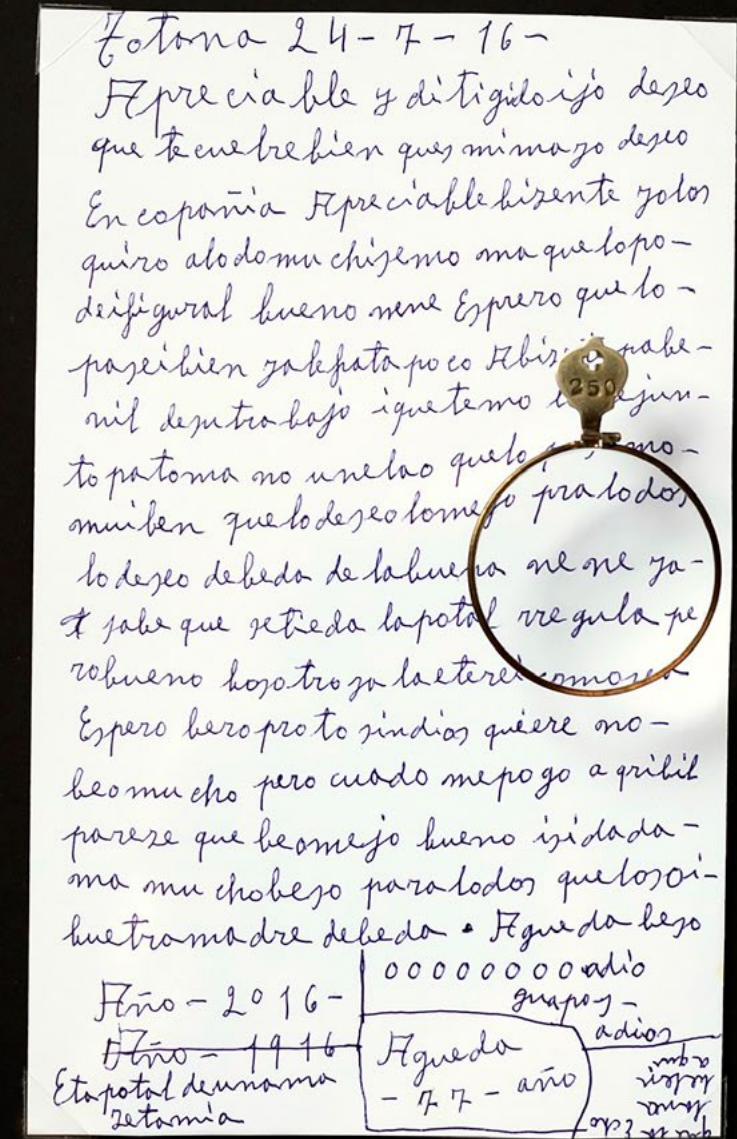 Totana 24-7-16-
Apreciable y ditigidoijo deseo
que tecuebrebien quesmimayo deseo
En copañia Apreciablebizente yolos
quiro alodomuchisemo ma quelopo-
deifigural bueno nene Esprero que lo-
paseibien yalepata poco Abiz sabe-
nil desutrabajo iquetemo ejun-
topatoma no unelao quelo mo-
muiben quelodeseolomejo pralodos
lo deseo debeda de labuena ne ne ya-
sabe que setieda lapotal rregula pe
robueno bosotrosa laeterei comosea
Espero beroproto sindios quiere no-
beomucho pero cuado mepogo a qribil
pareze que beomejo bueno isidada-
ma muchobeso paralodos quelosoi-
buetramadre debeda. Agueda beso
000000000 adio
guapos-
adios
Año-2016-
Año-1916
Agueda
-77-año
Etapotal deunama
zetamia
aqui